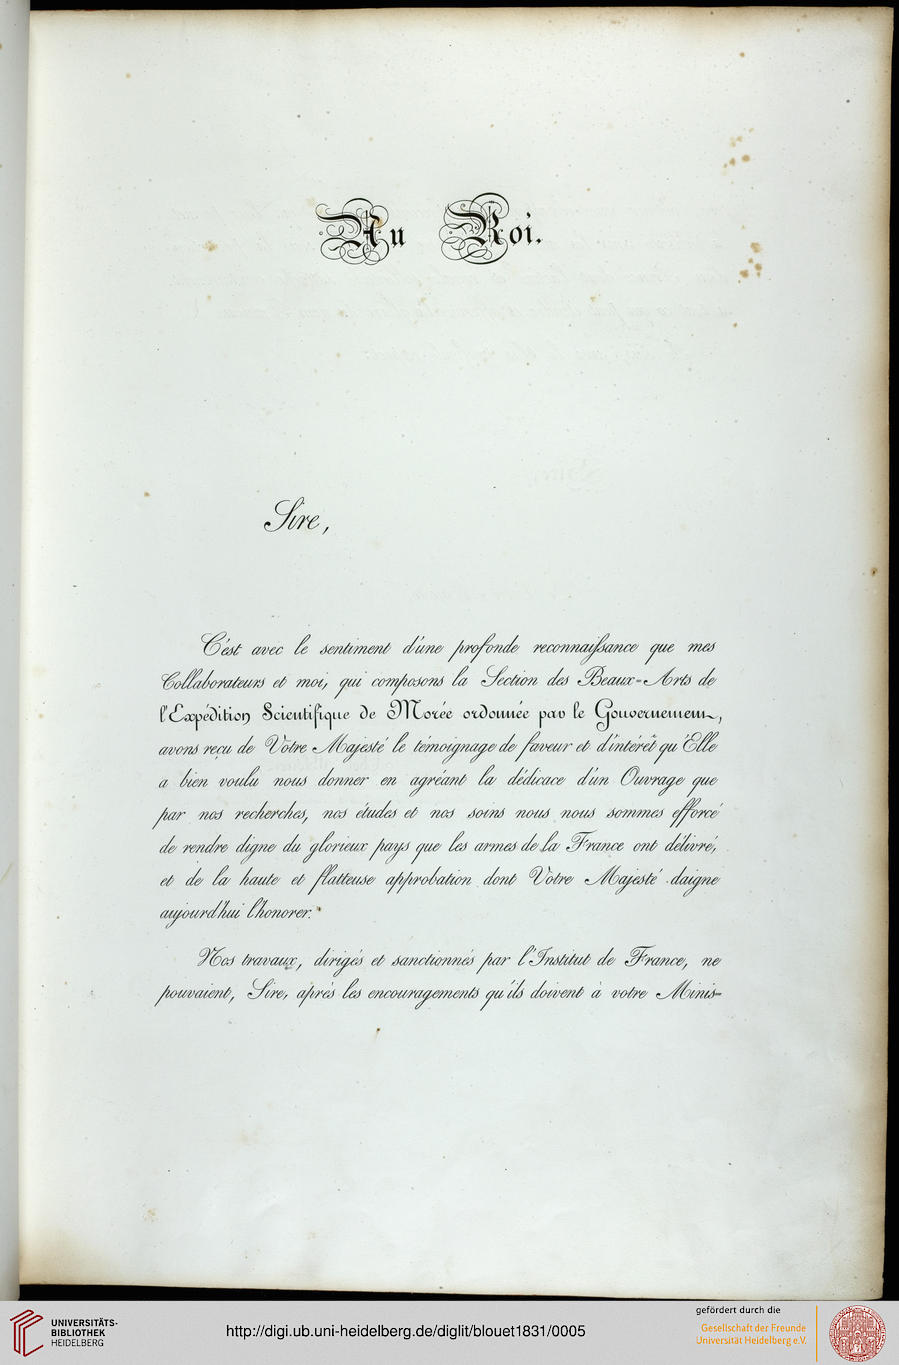 Au Roi.
Sire,
C'est avec le sentiment d'une profonde reconnaissance que mes
Collaborateurs et moi, qui composons la Section des Beaux-Arts de
l'Expédition Scientifique de Morée ordonnée par le Gouvernement,
avons reçu de Votre Majesté le témoignage de faveur et d'intérêt qu'Elle
a bien voulu nous donner en agréant la dédicace d'un Ouvrage que
par nos recherches, nos études et nos soins nous nous sommes efforcé
de rendre digne du glorieux pays que les armes de la France ont délivré,
et de la haute et flatteuse approbation dont Votre Majesté daigne
aujourd'hui l'honorer.
Nos travaux, dirigés et sanctionnés par l'Institut de France, ne
pouvaient, Sire, après les encouragements qu'ils doivent à votre Minis-
UNIVERSITÄTS-
BIBLIOTHEK
HEIDELBERG
http://digi.ub.uni-heidelberg.de/diglit/blouet1831/0005
gefördert durch die
Gesellschaft der Freunde
Universität Heidelberg e.V.